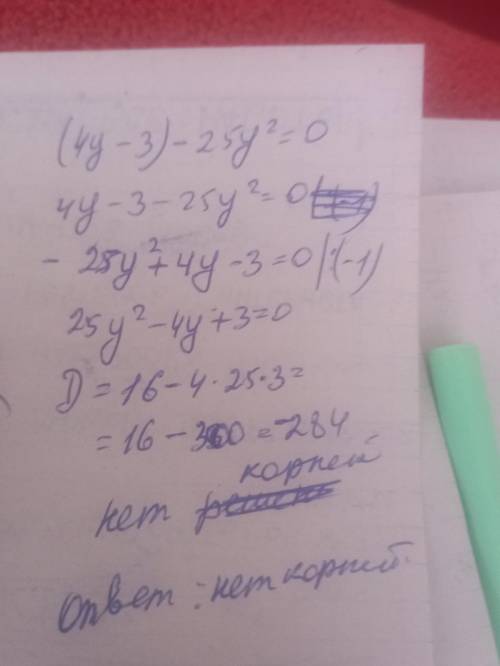 (4y - 3) - 25y² = 0
4y - 3 - 25y² = 0
- 25y² + 4y - 3 = 0 | :(-1)
25y² - 4y + 3 = 0
D = 16 - 4 · 25 · 3 =
= 16 - 300 = -284
нет корней
Ответ: нет корней.